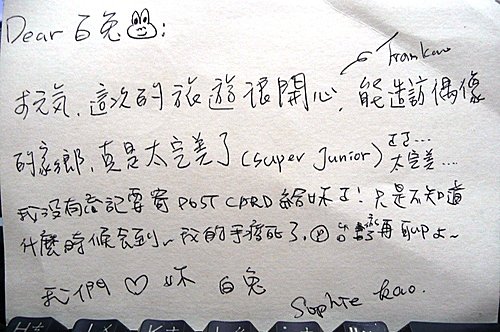 Dear 白兔:
Frankau
お元気, 這次的旅遊很開心, 能造訪偶像
的家鄉, 真是太完美了(super Junior)
太完美...
我沒有忘記要寄 POST CARD 給妳了! 只是不知道
什麼時候會到~ 我的手痠死了,
我們♡妳 白兔
Sophie Kao.